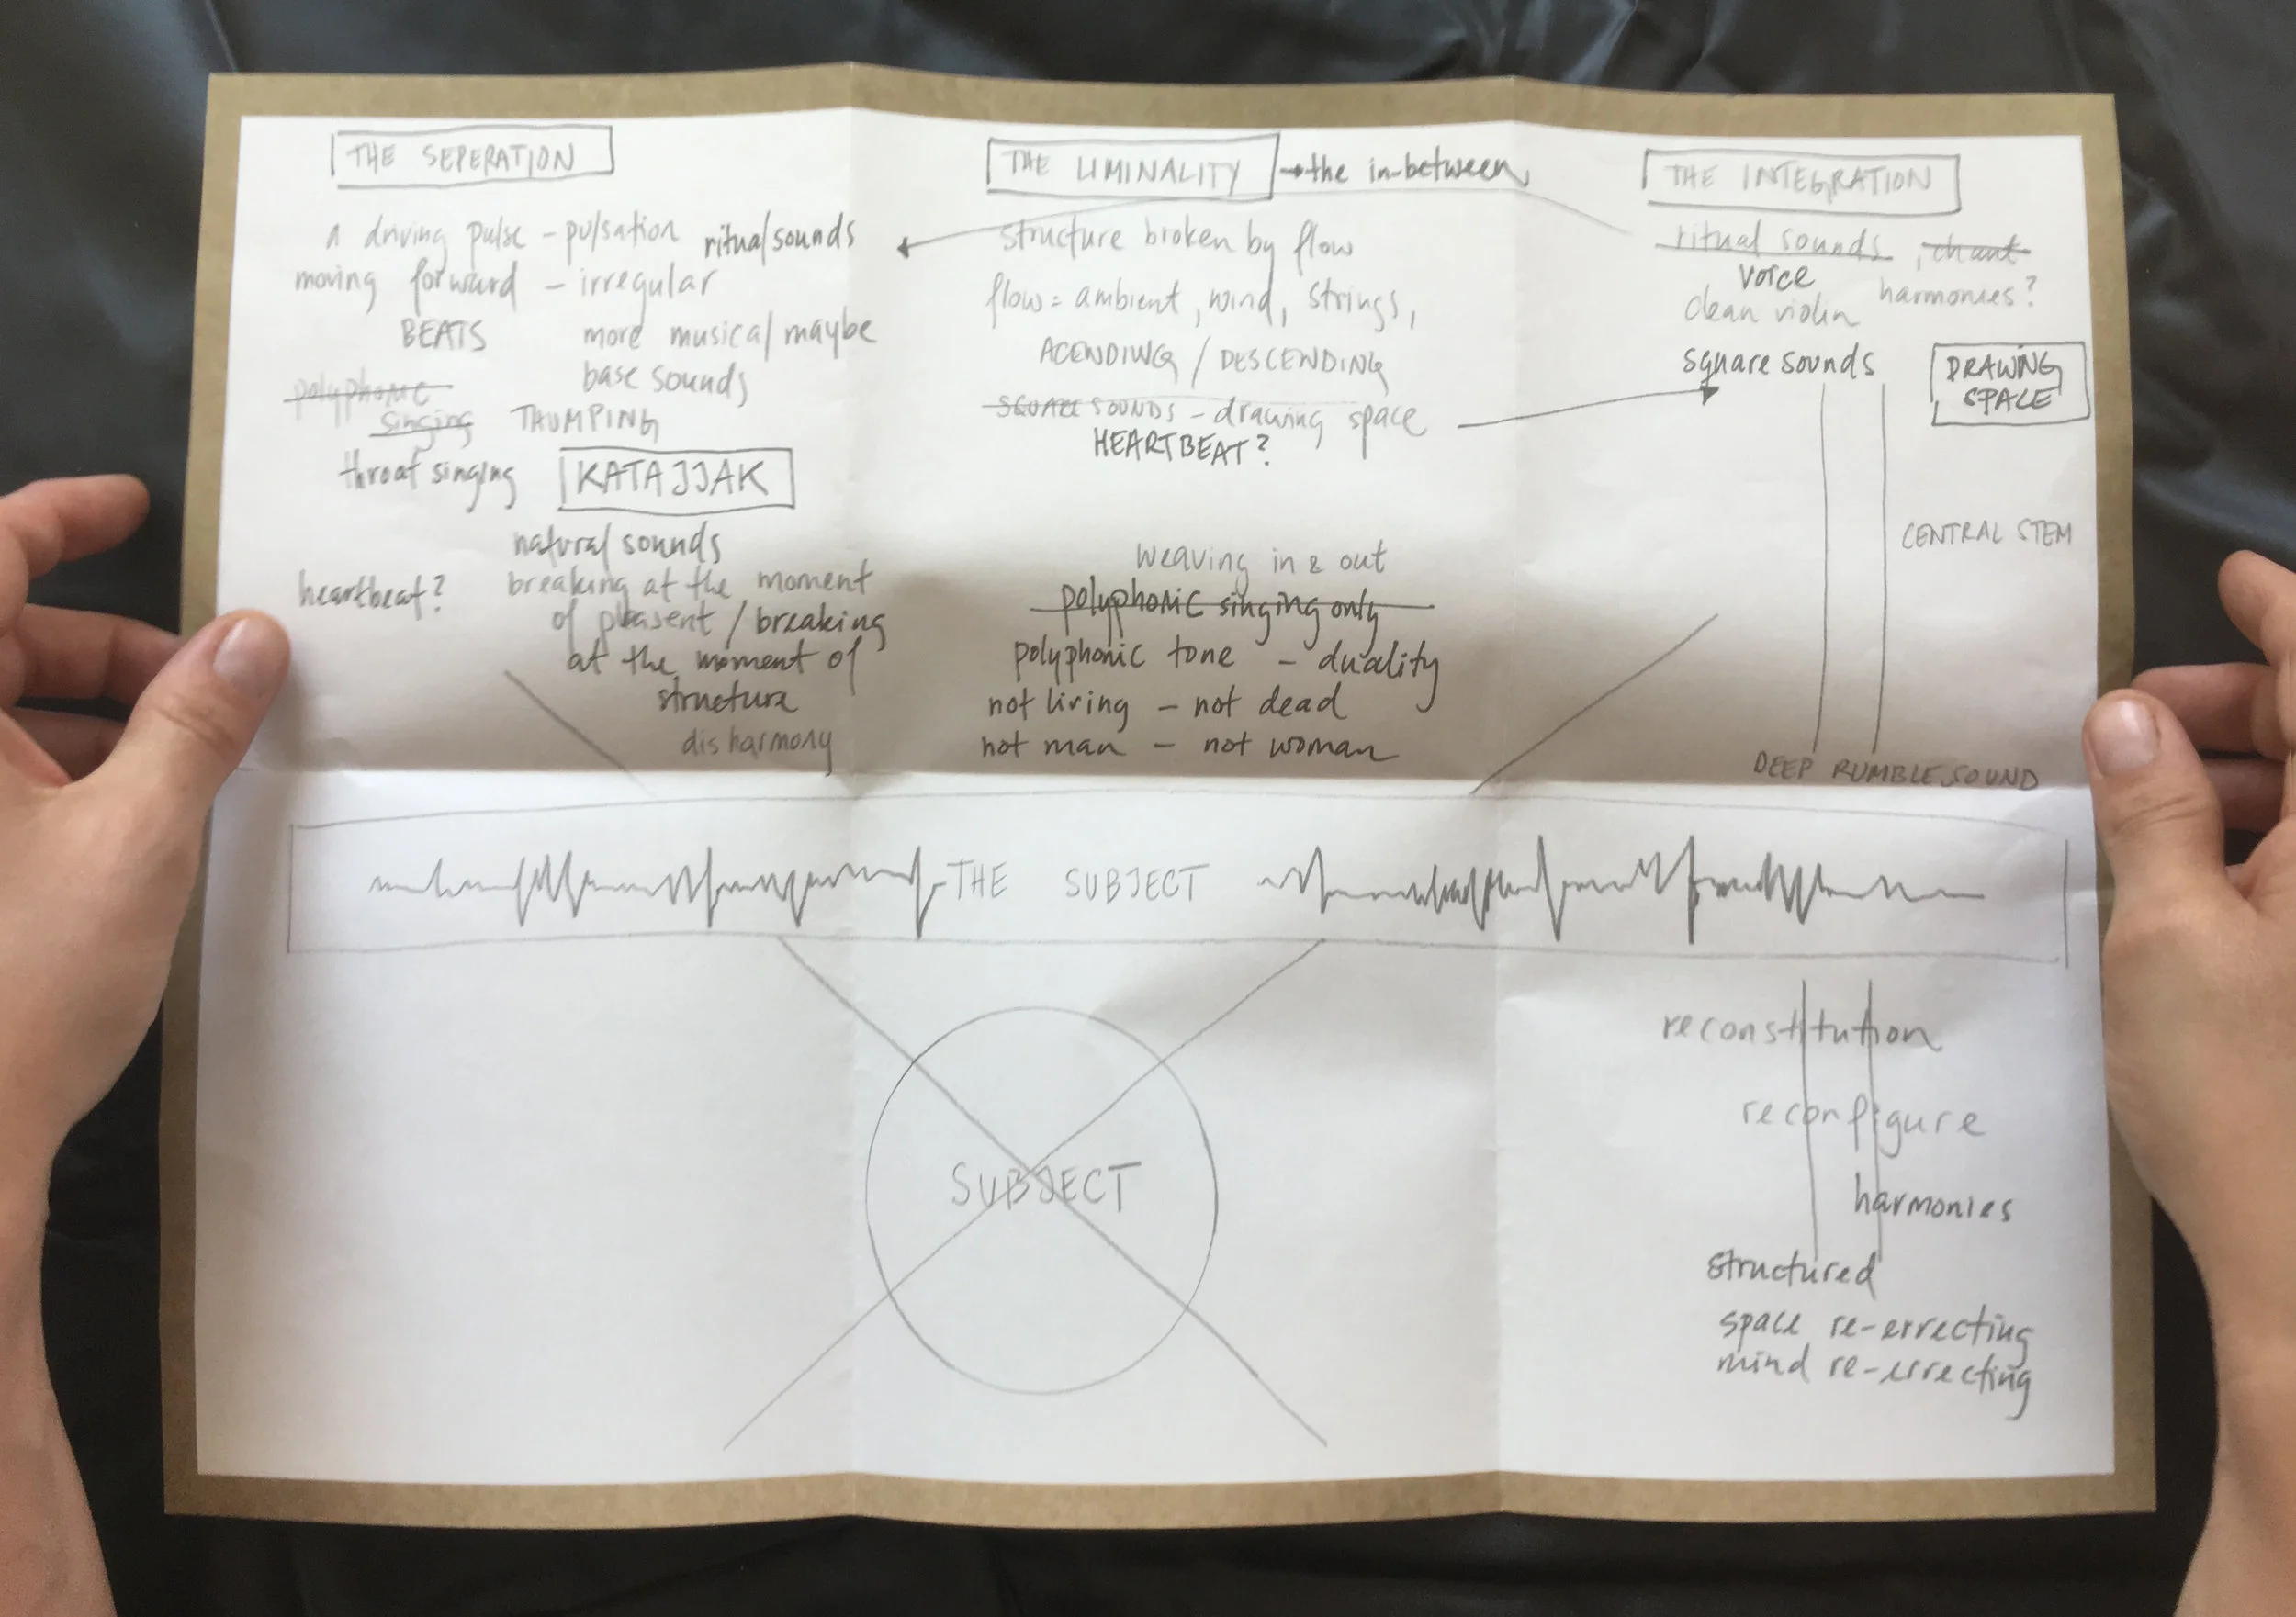 THE SEPERATION
a driving pulse – pulsation ritual sounds
moving forward – irregular
BEATS more musical maybe
base sounds
polyphonic
singing THUMPING
throat singing KATAJJAK
natural sounds
heartbeat? breaking at the moment
of / breaking
at the moment of
structure
disharmony
THE LIMINALITY → the in-between
structure broken by flow
flow = ambient, wind, strings,
ACENDING / DESCENDING
SQUARE SOUNDS – drawing space
HEARTBEAT?
weaving in & out
polyphonic singing only
polyphonic tone – duality
not living – not dead
not man – not woman
THE INTEGRATION
ritual sounds, chant
voice
clean violin harmonies?
square sounds DRAWING
SPACE
CENTRAL STEM
DEEP RUMBLE SOUND
THE SUBJECT
SUBJECT
reconstitution
reconfigure
harmonies
structured
space re-errecting
mind re-errecting